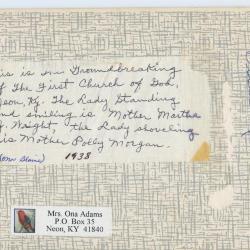 is is on Groundbreaking
f The First Church of God,
eon, Ky. The Lady Standing
nd smiling is Mother Martha
. Wright, the Lady shoveling
is Mother Polly Morgan.
1938
Mrs. Ona Adams
P.O. Box 35
Neon, KY 41840